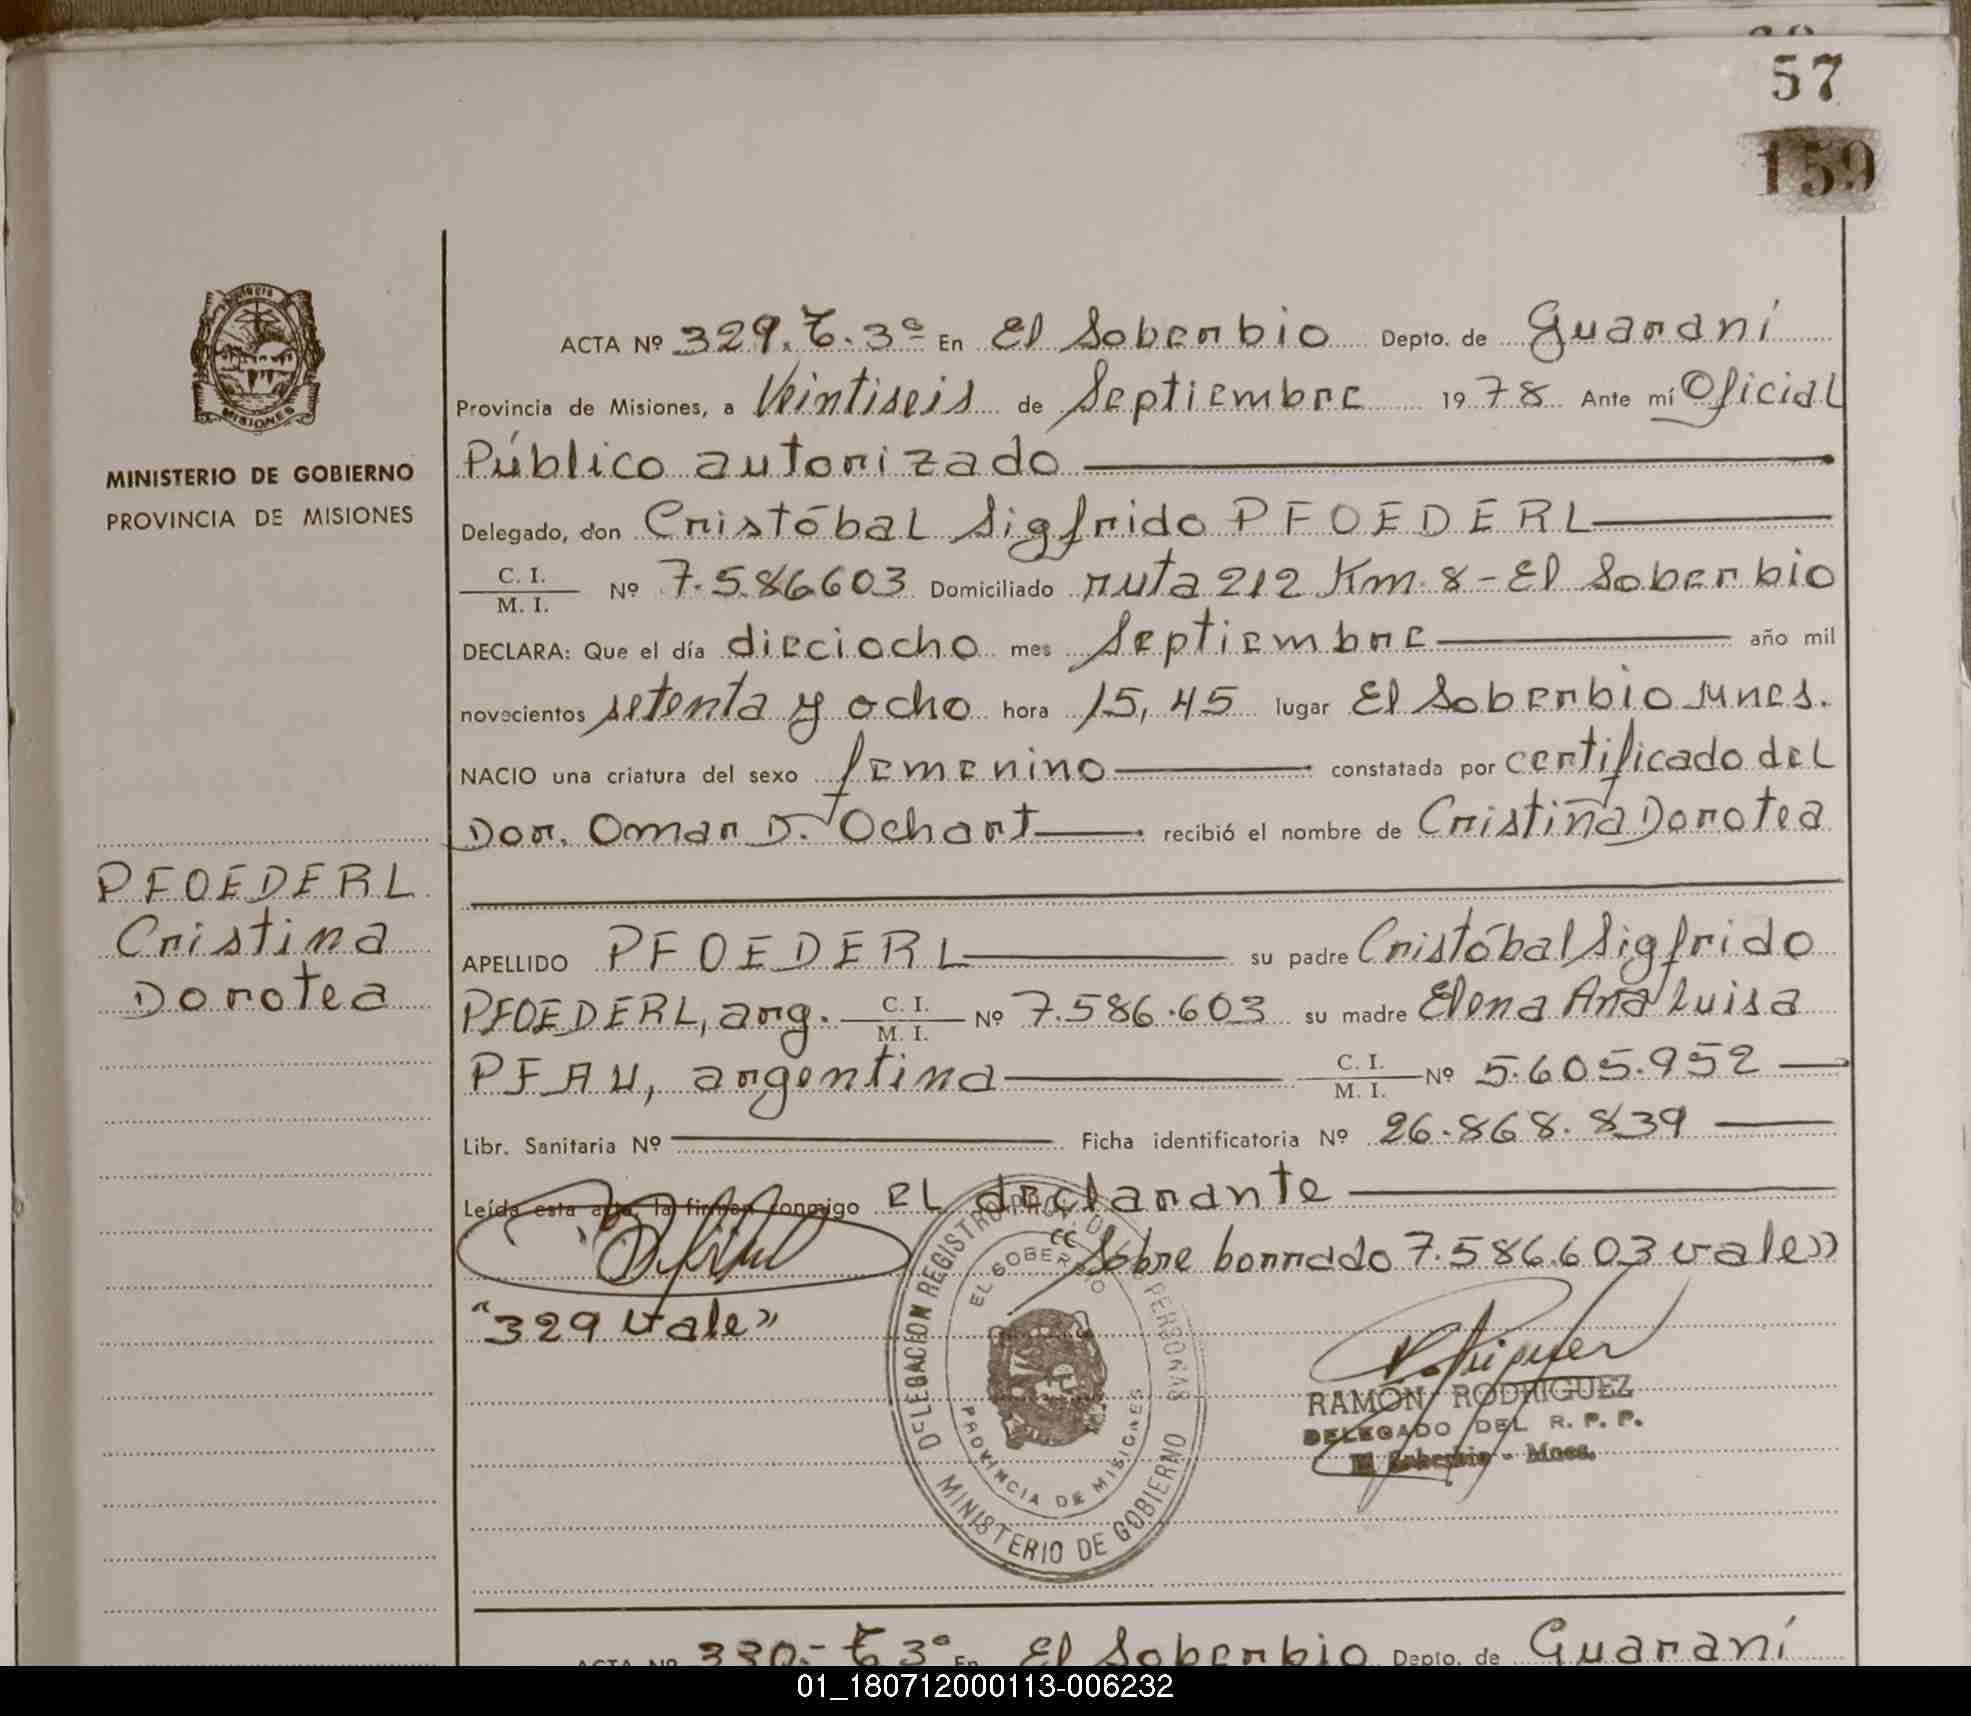 57
159
Provincia
MISIONES
MINISTERIO DE GOBIERNO
PROVINCIA DE MISIONES
PFOEDERL
Cristina
Dorotea
ACTA Nº 329. T. 3º En El Soberbio Depto. de Guaraní
Provincia de Misiones, a Veintiseis de Septiembre 1978 Ante mí Oficial
Público autorizado
Delegado, don Cristóbal Sigfrido PFOEDERL
C. I.
M. I. Nº 7.586603 Domiciliado ruta 212 Km. 8 - El Soberbio
DECLARA: Que el día dieciocho mes Septiembre año mil
novecientos setenta y ocho hora 15,45 lugar El Soberbio Mnes.
NACIO una criatura del sexo femenino constatada por certificado del
Dor. Omar D. Ochart recibió el nombre de Cristina Dorotea
APELLIDO PFOEDERL su padre Cristóbal Sigfrido
PFOEDERL, arg. C. I. M. I. Nº 7.586.603 su madre Elena Ana Luisa
PFAU, argentina C. I. M. I. Nº 5.605.952
Libr. Sanitaria Nº Ficha identificatoria Nº 26.868.839
Leída esta acta, la firman conmigo El declarante
"Sobre borrado 7.586.603 vale"
"329 vale"
DELEGACION REGISTRO PROV. DE PERSONAS
EL SOBERBIO
PROVINCIA DE MISIONES
MINISTERIO DE GOBIERNO
RAMÓN RODRIGUEZ
DELEGADO DEL R. P. P.
El Soberbio - Mnes.
ACTA Nº 330.- T 3º En El Soberbio Depto. de Guaraní
01_180712000113-006232